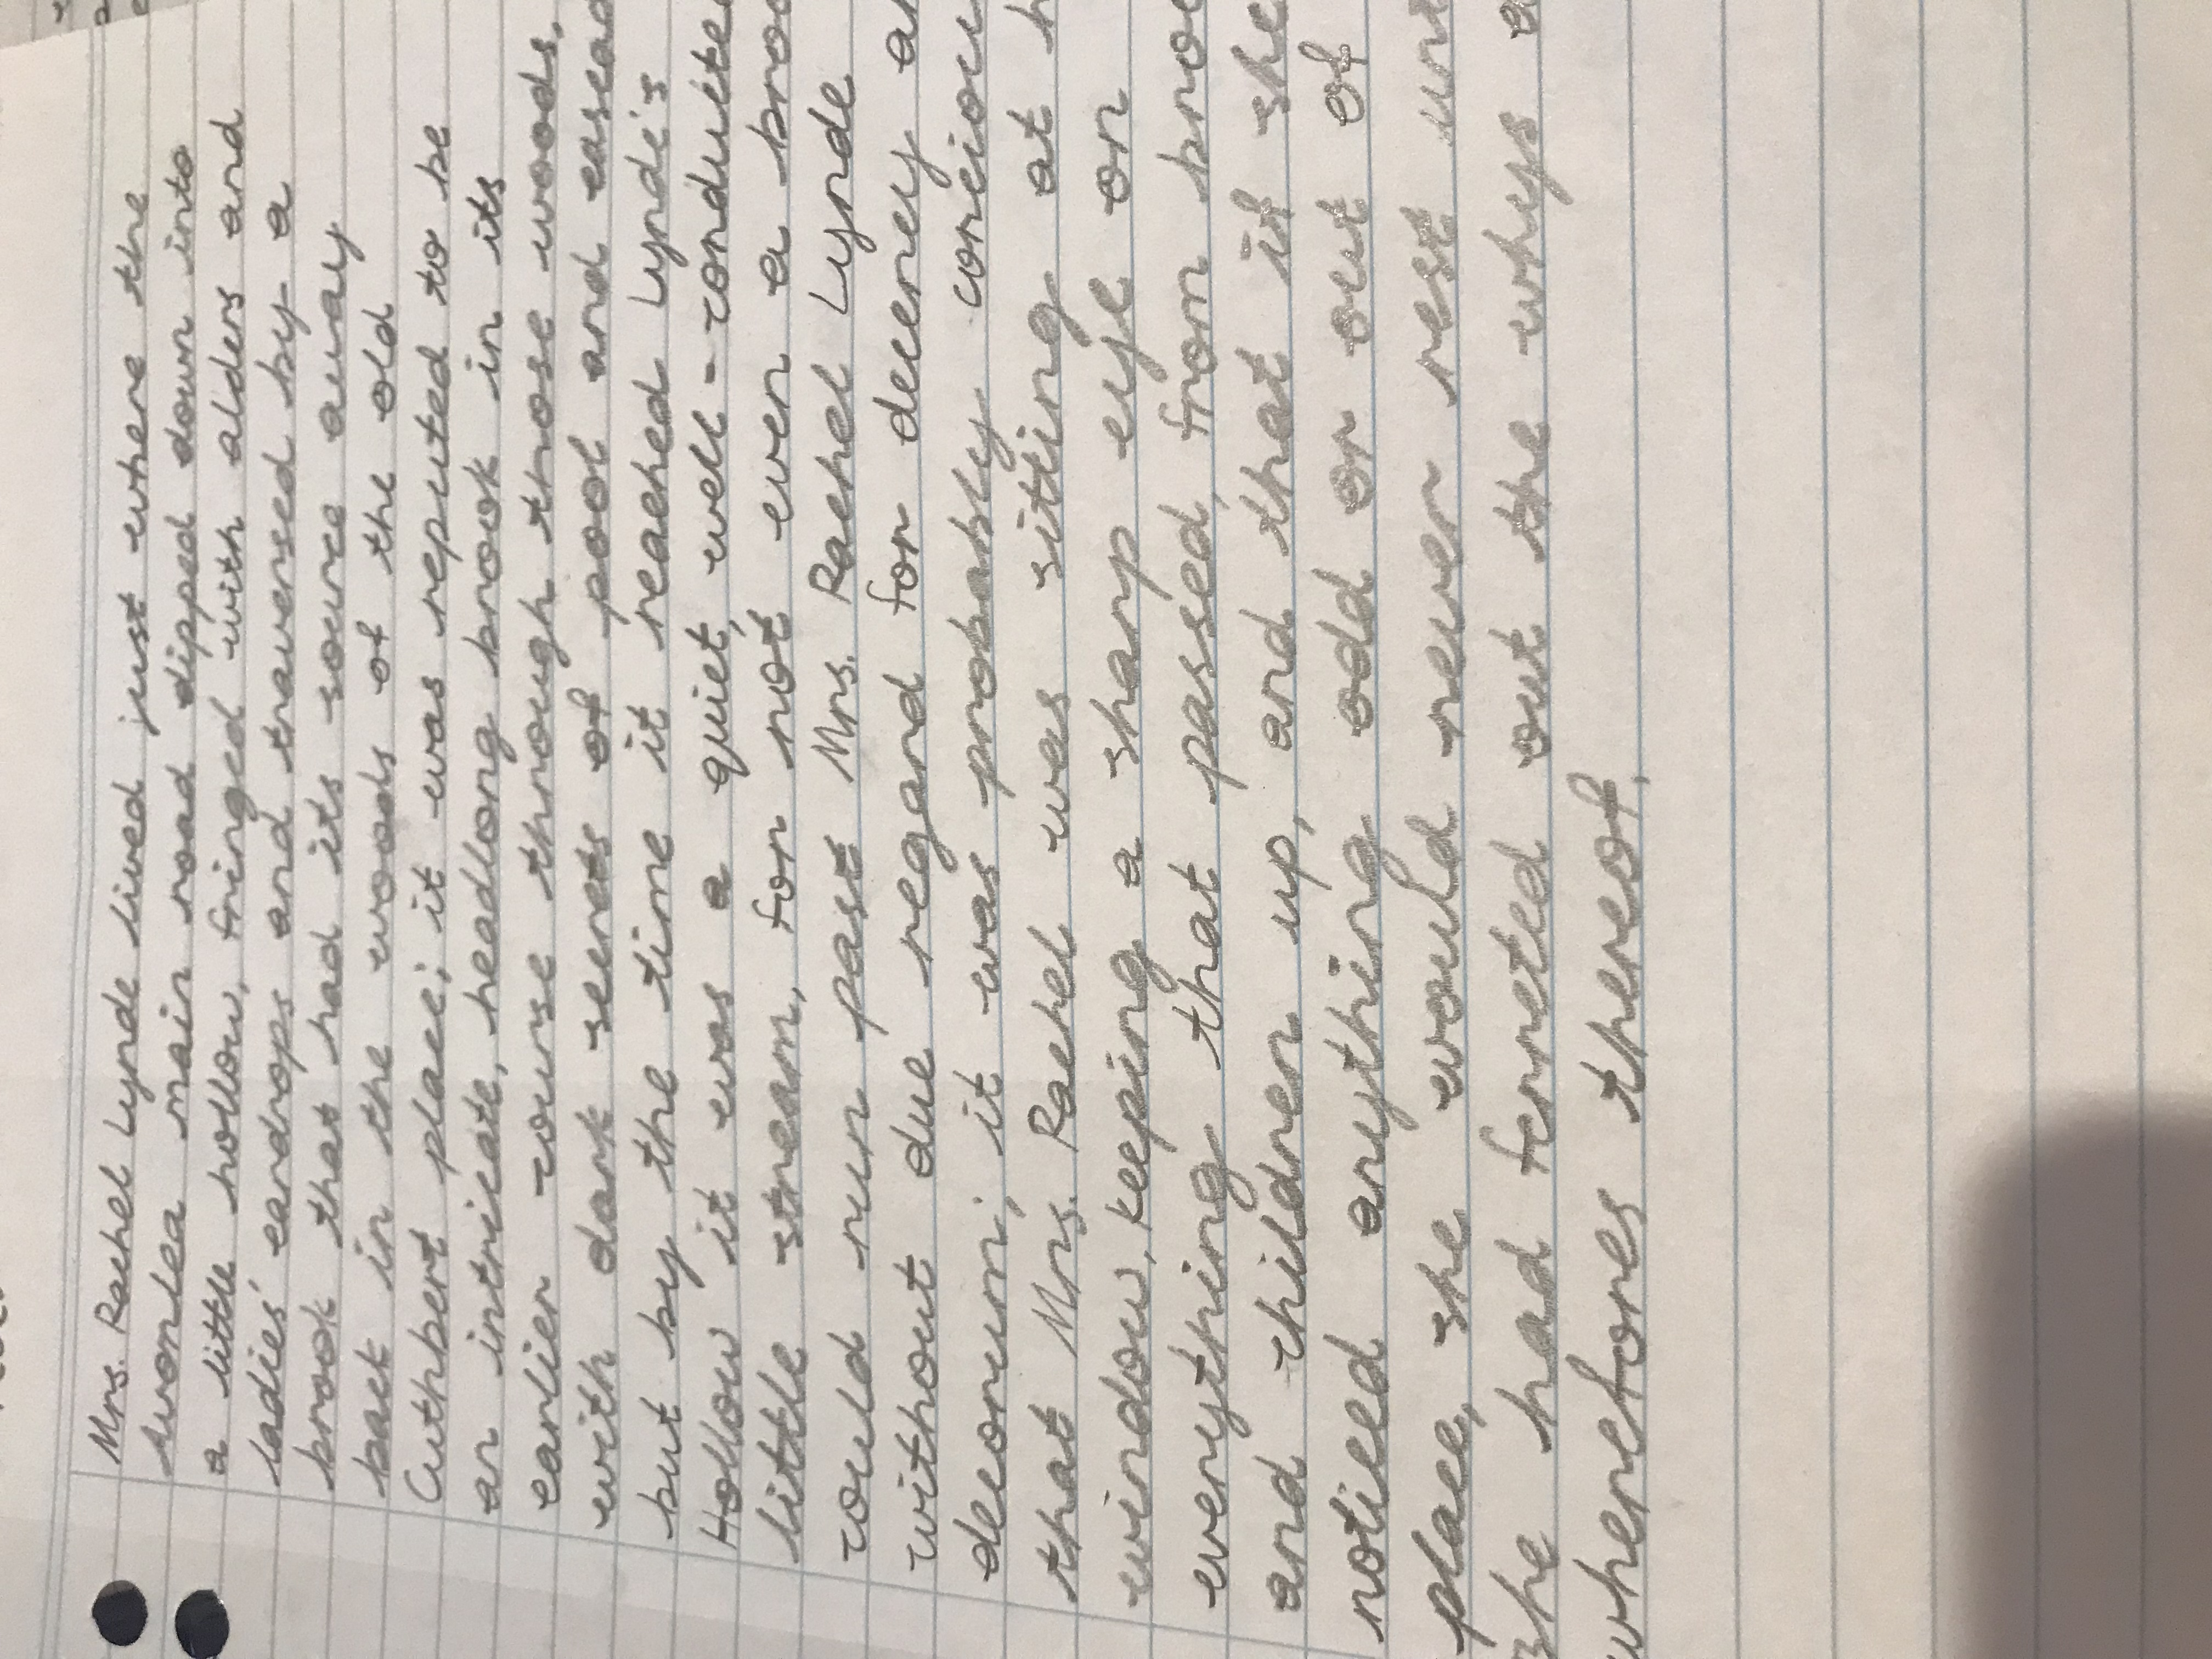 Mrs. Rachel Lynde lived just where the
Avonlea main road dipped down into
a little hollow, fringed with alders and
ladies' eardrops and traversed by a
brook that had its source away
back in the woods of the old
Cuthbert place; it was reputed to be
an intricate, headlong brook in its
earlier course through those woods,
with dark secrets of pool and cascad
but by the time it reached Lynde's
Hollow it was a quiet, well-conducted
little stream, for not even a broo
could run past Mrs. Rachel Lynde
without due regard for decency an
decorum; it was probably conciou
that Mrs. Rachel was sitting at h
window, keeping a sharp eye on
everything that passed, from broo
and children up, and that if she
noticed anything odd or out of
place, she would never rest unt
she had ferreted out the whys a
wherefores thereof.